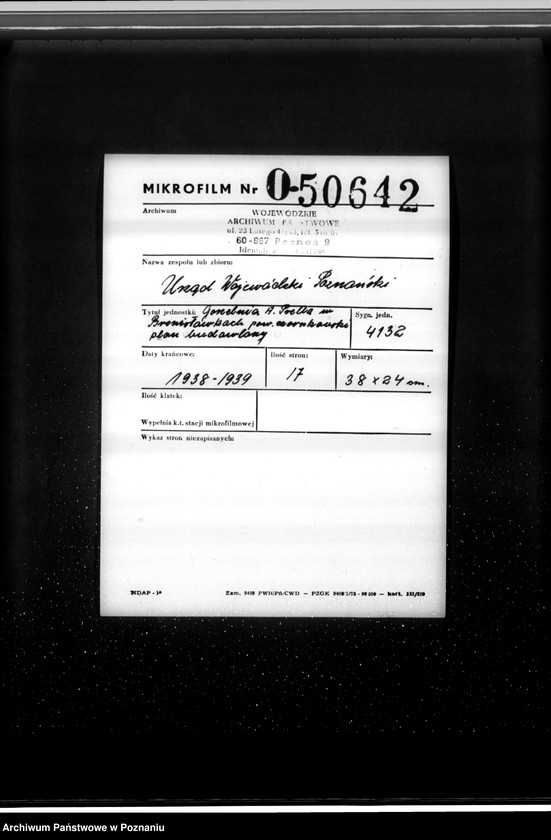 MIKROFILM Nr O-50642
Archiwum
WOJEWÓDZKIE
ARCHIWUM PAŃSTWOWE
ul. 23 Lutego
60-967 Poznań 9
Nazwa zespołu lub zbioru:
Urząd Wojewódzki Poznański
Tytuł jednostki: Gorzelnia A. w
Bronisławkach pow. czarnkowski
plan budowlany
Sygn. jedn.
4132
Daty krańcowe:
1938-1939
Ilość stron:
17
Wymiary:
38 x 24 cm.
Ilość klatek:
Wypełnia k.t. stacji mikrofilmowej
Wykaz stron niezapisanych:
NDAP - Zam. 9409 PWKiPA/CWD — PZGK — kart.
Archiwum Państwowe w Poznaniu